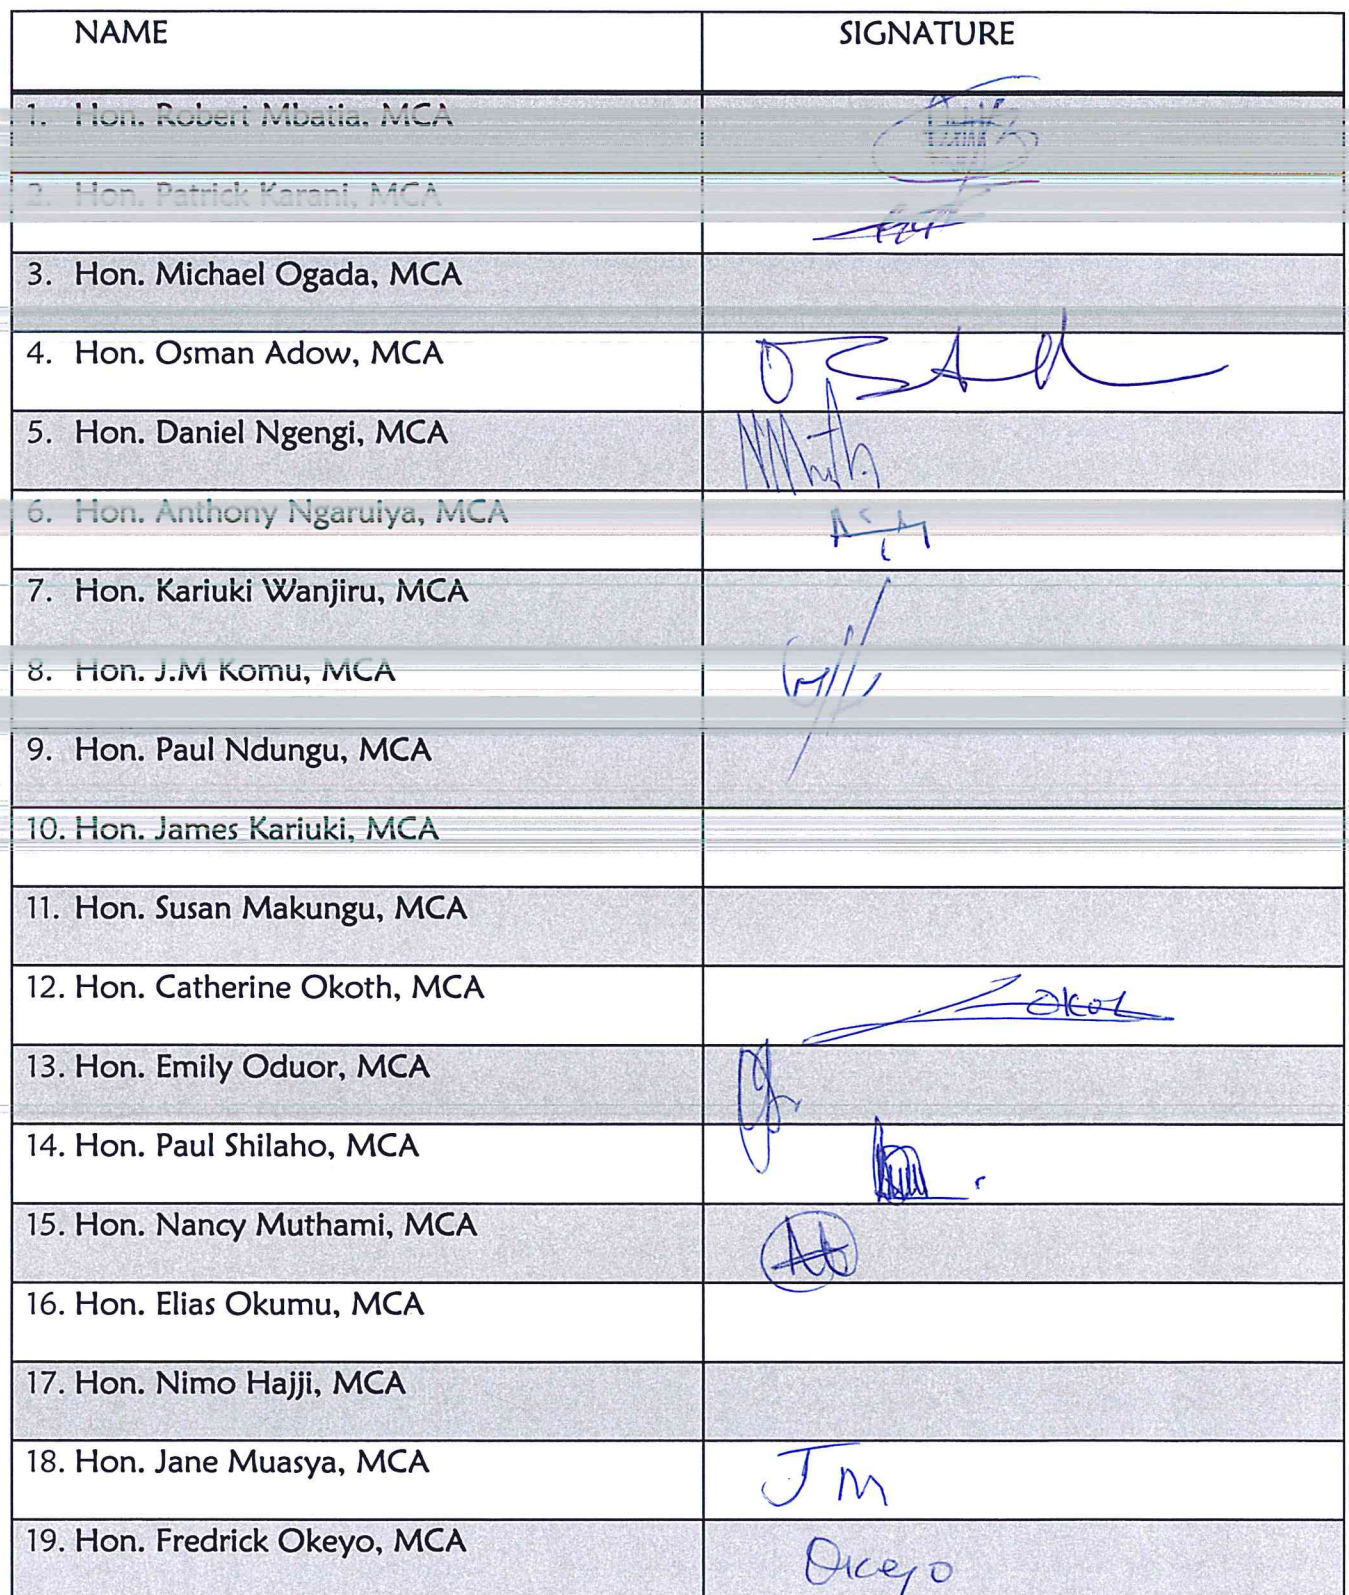 NAME SIGNATURE
1. Hon. Robert Mbatia, MCA
2. Hon. Patrick Karani, MCA
3. Hon. Michael Ogada, MCA
4. Hon. Osman Adow, MCA
5. Hon. Daniel Ngengi, MCA
6. Hon. Anthony Ngaruiya, MCA
7. Hon. Kariuki Wanjiru, MCA
8. Hon. J.M Komu, MCA
9. Hon. Paul Ndungu, MCA
10. Hon. James Kariuki, MCA
11. Hon. Susan Makungu, MCA
12. Hon. Catherine Okoth, MCA
13. Hon. Emily Oduor, MCA
14. Hon. Paul Shilaho, MCA
15. Hon. Nancy Muthami, MCA
16. Hon. Elias Okumu, MCA
17. Hon. Nimo Hajji, MCA
18. Hon. Jane Muasya, MCA JM
19. Hon. Fredrick Okeyo, MCA Okeyo